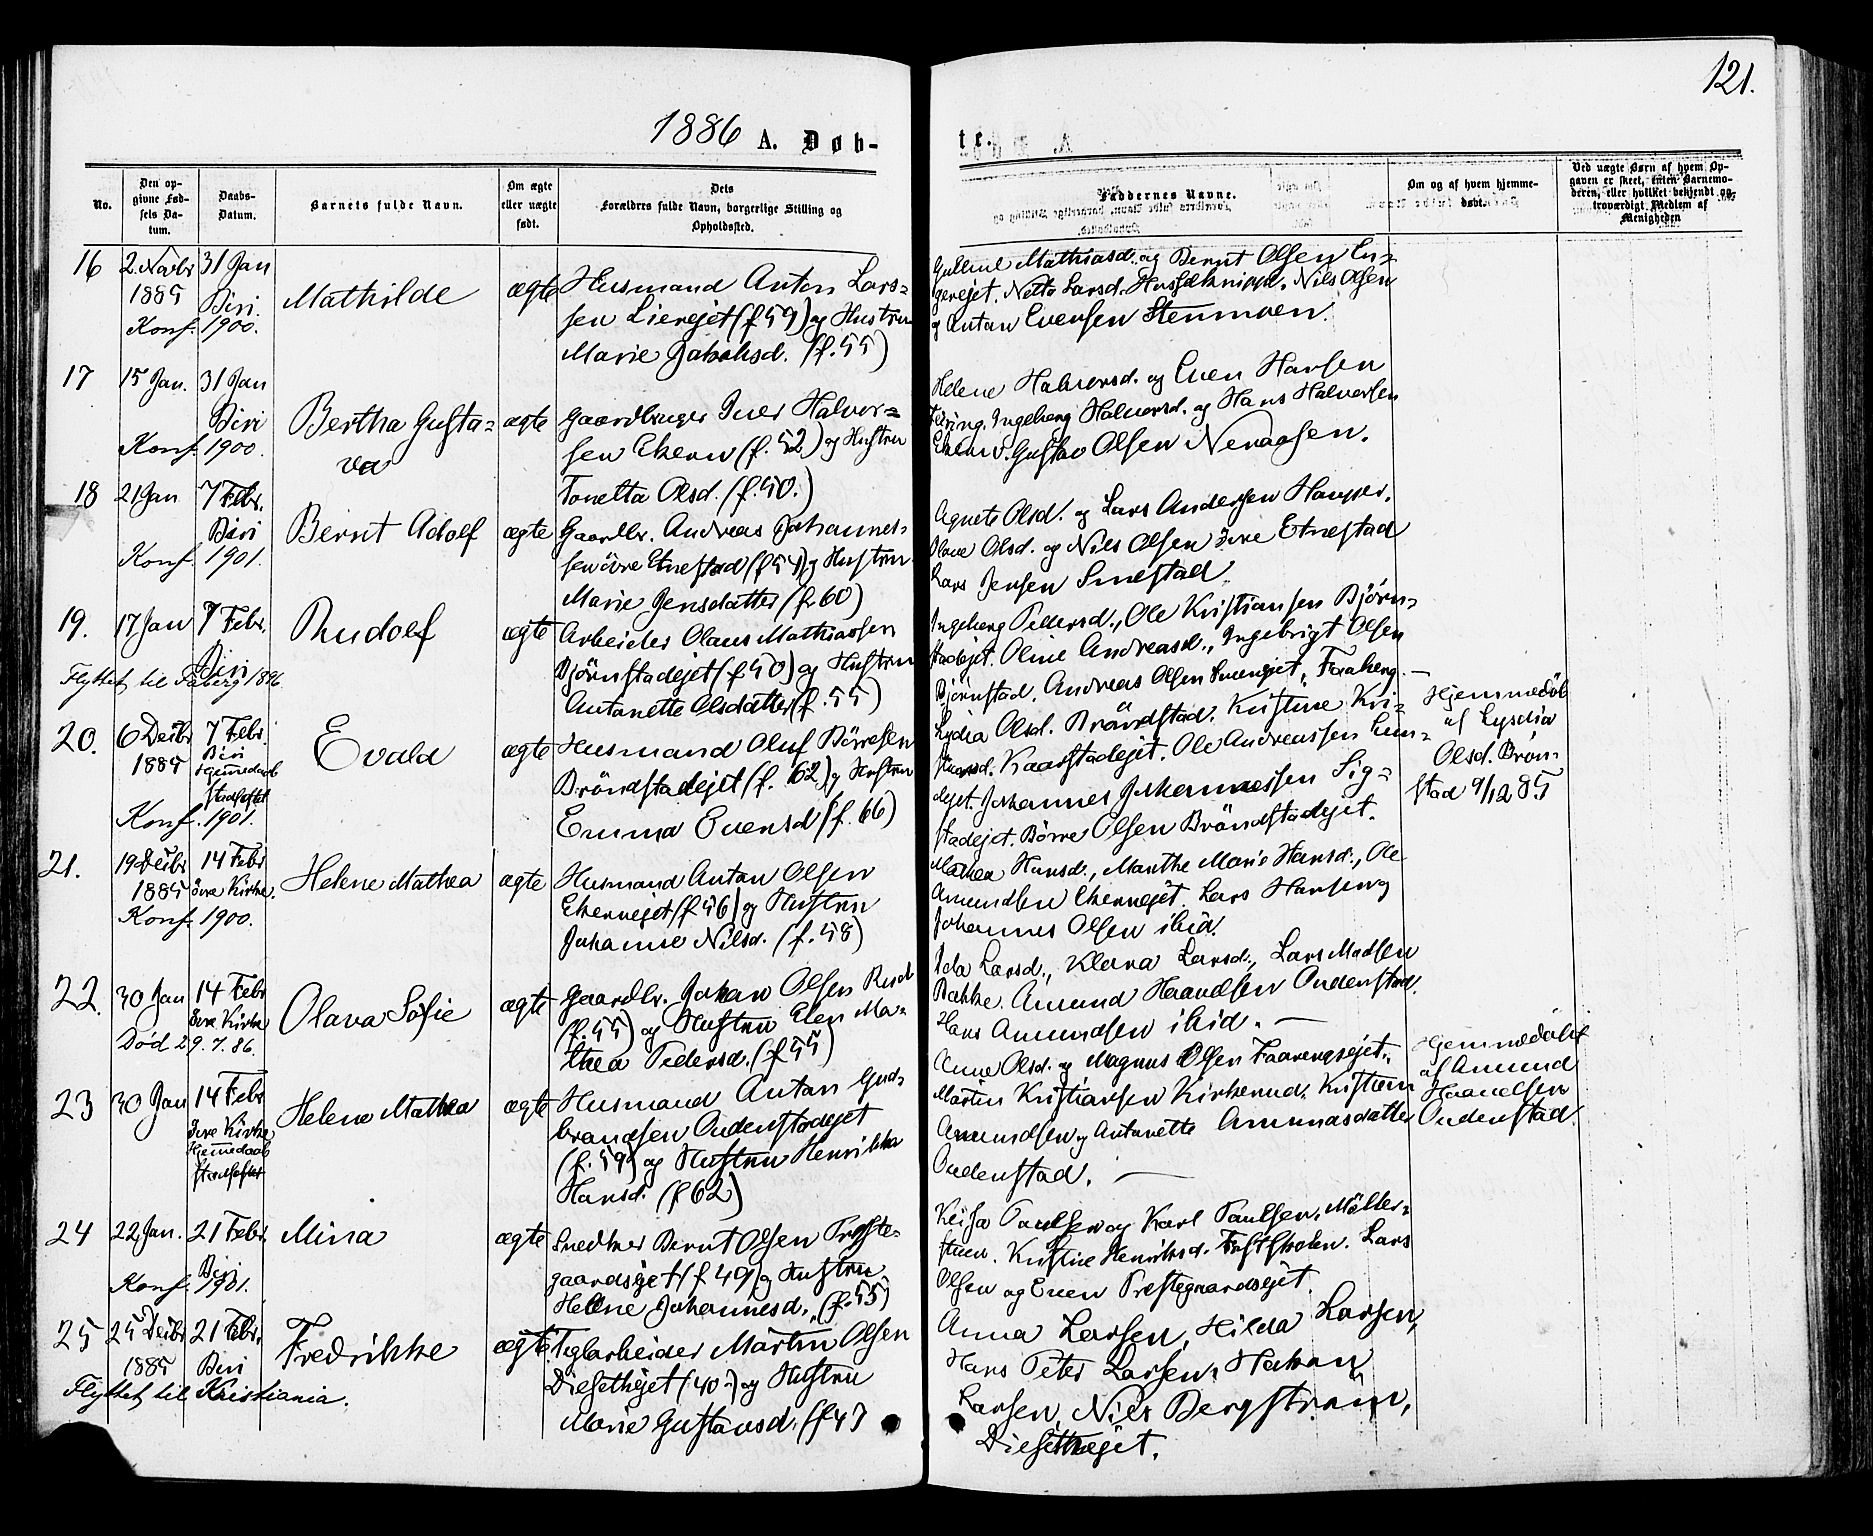 121.
1886 A. Døb-
te.
No.
Den op-
givne Fød-
sels Da-
tum.
Daabs-
Datum.
Barnets fulde Navn.
Om ægte
eller uægte
født.
Dets
Forældres fulde Navn, borgerlige Stilling og
Opholdssted.
Faddernes Navne.
Om og af hvem hjemme-
døbt.
Ved uægte Børn af hvem Op-
gaven er skeet, enten Barnemo-
deren, eller hvilket bekjendt og
troværdigt Medlem af
Menigheden
16
2. Novbr
1885
Konf. 1900.
31 Jan
Biri.
Mathilde
ægte
Husmand Anton Lars=
sen Lierejet (f 59) og Hustru
Marie Jakobsd. (f. 55)
Mathiasd. og Bernt Olsen En=
gerejet. Netto Larsd. Nils Olsen
og Antan Evensen Stenmoen.
17
15 Jan.
Konf. 1900.
31 Jan
Biri
Bertha Gusta=
va
ægte
Gaardbruger Iver Halvor=
sen Ekern (f. 52) og Hustru
Tonetta Olsd. (f. 50.)
Helene Halvorsd. og Even Hansen
Ingeborg Halvorsd. og Hans Halvorsen
Ekern. Gustav Olsen Neraasen.
18
21 Jan
Konf. 1901.
7 Febr.
Biri
Bernt Adolf
ægte
Gaardbr. Andreas Johannes=
sen övre Etnestad (f 54) og Hustru
Marie Jensdatter (f. 60)
Agnete Olsd. og Lars Andersen
Olave Olsd. og Nils Olsen övre Etnestad
Lars Jensen Smestad.
19.
17 Jan
7 Febr.
Biri
Flyttet til Faberg 1896.
Rudolf
ægte
Arbeider Olaus Mathiassen
Björnstadejet (f 50) og Hustru
Antonette Olsdatter (f. 55)
Ingeborg Pedersd., Ole Kristiansen Björn=
stadejet. Oline Andreasd., Ingebrigt Olsen
Björnstad. Andreas Olsen Faaberg.
20.
6 Decbr
1885
Konf. 1901.
7 Febr.
Biri
Hjemmedaab
stadfæstet
Evald
ægte
Husmand Oluf Börresen
Bröndstadejet (f. 62) og Hustru
Emma Evensd (f. 66)
Lydia Olsd. Bröndstad. Kristine Kri=
Kaarstadejet. Ole Andreassen Lun=
dejet. Johannes Johannessen Sig=
stadejet. Börre Olsen Bröndstadejet.
Hjemmedöb
af Lysdia
Olsd. Brön-
stad 9/12 85
21.
19 Decbr
1885
Konf. 1900.
14 Febr
övre Kirke.
Helene Mathea
ægte
Husmand Antan Olsen
Ekernejet (f 56) og Hustru
Johanne Nilsd. (f. 58)
Mathea Hansd., Marthe Marie Hansd., Ole
Amundsen Ekernejet. Lars Hansen og
Johannes Olsen ibid.
22.
30 Jan
Död 29.7.86.
14 Febr
övre Kirke
Olava Sofie
ægte
Gaardbr. Johan Olsen Rud
(f. 55) og Hustru Elen Ma=
thea Pedersd. (f 55)
Ida Larsd., Klara Larsd., Lars Madsen
Bakke. Amund Haandsen Oudenstad.
Hans Amundsen ibid.
23
30 Jan
14 Febr
övre Kirke
Hjemmedaab
stadfæstet
Helene Mathea
ægte
Husmand Antan Gud=
brandsen Oudenstadejet
(f. 59) og Hustru Henrikka
Hansd. (f 62)
Anne Olsd. og Magnus Olsen Faarengsejet.
Martin Kristiansen Kirkerud. Kristian
Amundsen og Antonette Amundsdatter
Oudenstad.
Hjemmedöbt
af Amund
Haandsen
Oudenstad.
24
22 Jan.
Konf. 1901.
21 Febr.
Biri
Mina
ægte
Snedker Bernt Olsen Preste=
gaardsejet (f 49) og Hustru
Helene Johannesd. (f. 55)
Paulsen og Karl Paulsen, Möller=
stuen. Kristine Henriksd. Lars
Olsen og Even Prestegaardsejet.
25
25 Decbr
1885
21 Febr.
Biri
Flyttet til Kristiania.
Fredrikke
ægte
Teglarbeider Martin Olsen
Diesethejet (40) og Hustru
Marie Gustavsd. (f 43
Anna Larsen, Hilda Larsen,
Hans Peter Larsen, Hakon
Larsen, Nils Bergström,
Diesethejet.